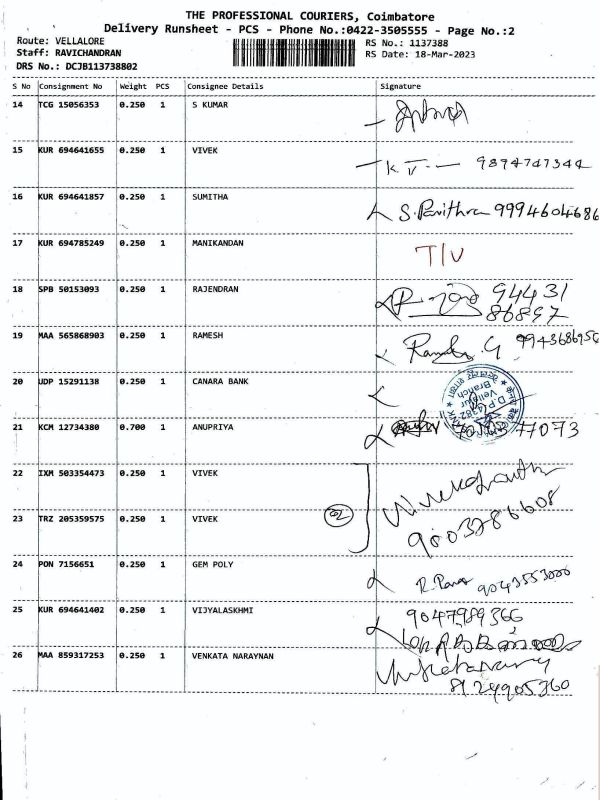 THE PROFESSIONAL COURIERS, Coimbatore
Delivery Runsheet - PCS - Phone No.:0422-3505555 - Page No.:2
Route: VELLALORE
Staff: RAVICHANDRAN
DRS No.: DCJB113738802
RS No.: 1137388
RS Date: 18-Mar-2023
S No Consignment No Weight PCS Consignee Details Signature
14 TCG 15056353 0.250 1 S KUMAR
15 KUR 694641655 0.250 1 VIVEK K.V. 9894747344
16 KUR 694641857 0.250 1 SUMITHA S. Pavithra 9994604686
17 KUR 694785249 0.250 1 MANIKANDAN T/V
18 SPB 50153093 0.250 1 RAJENDRAN 94431
86897
19 MAA 565868903 0.250 1 RAMESH G 9943686956
20 UDP 15291138 0.250 1 CANARA BANK
D.P. 4282
Vellalur
Branch
21 KCM 12734380 0.700 1 ANUPRIYA 77073
22 IXM 503354473 0.250 1 VIVEK
23 TRZ 205359575 0.250 1 VIVEK 2 9003286608
24 PON 7156651 0.250 1 GEM POLY 9043553000
25 KUR 694641402 0.250 1 VIJYALASKHMI 9047989366
26 MAA 859317253 0.250 1 VENKATA NARAYNAN
8124905360